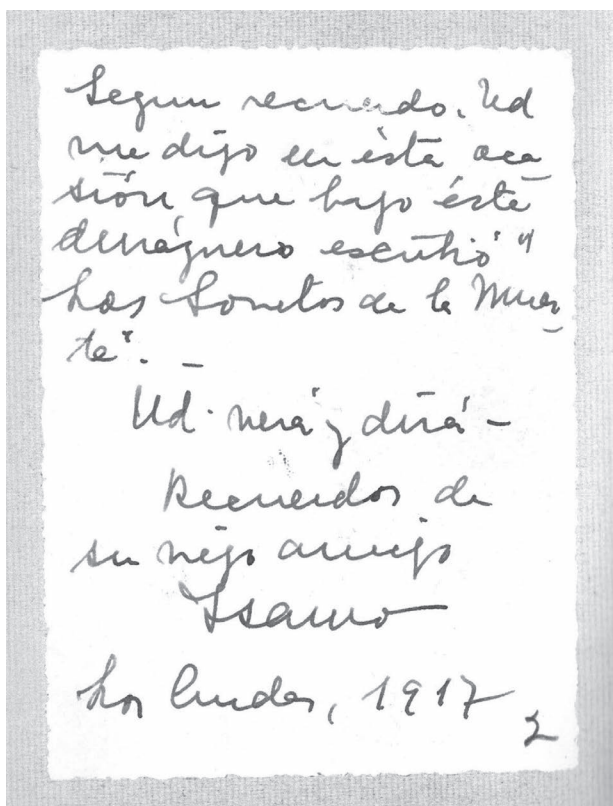 Segun recuerdo. Ud
me dijo en èsta oca
sión que bajo éste
dura​znero escribió "
Los Sonetos de la Muer_
te". _
Ud. verá y dirá –
Recuerdos de
su viejo amigo
Isauro
Los Andes, 1917
2